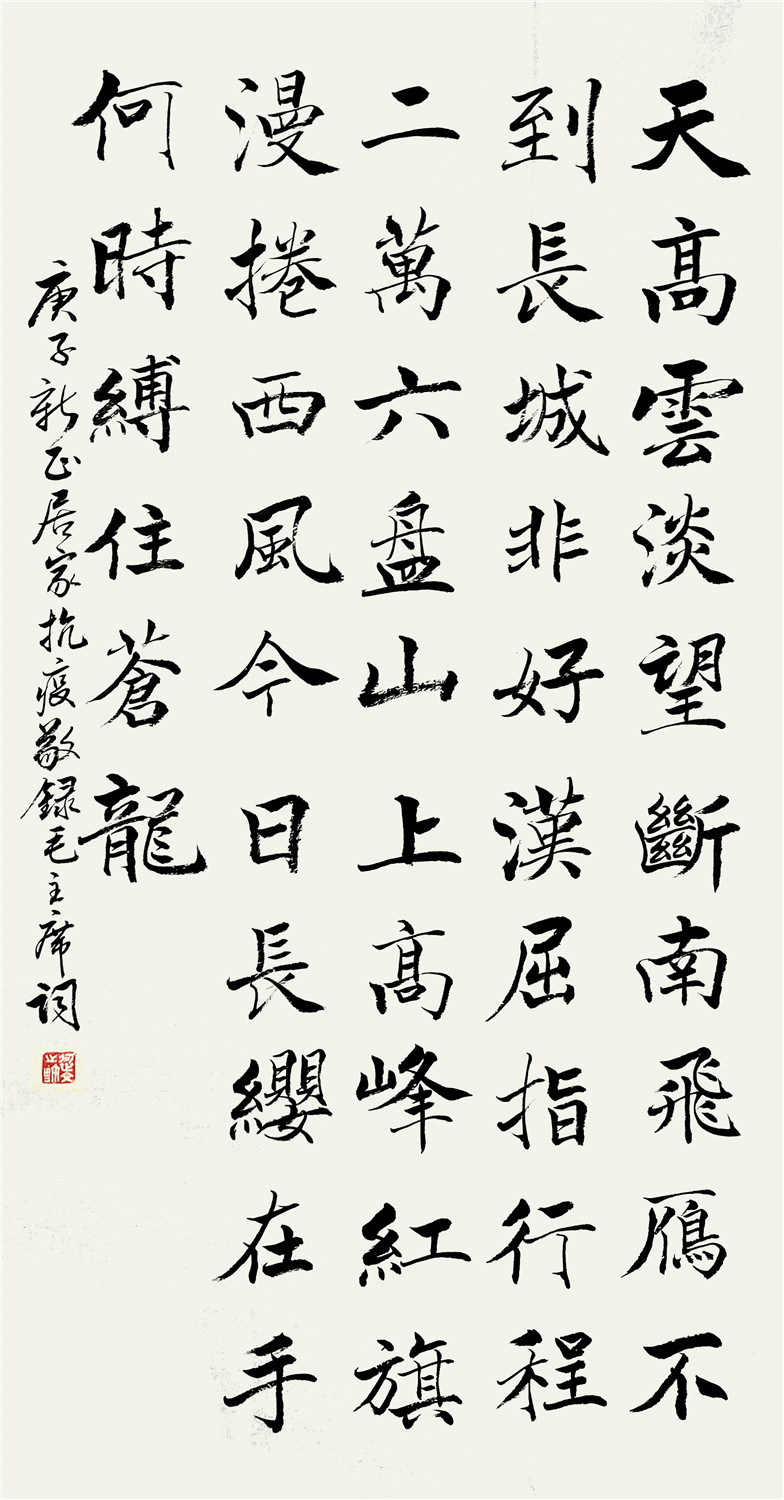 天髙雲淡望斷南飛鴈不
到長城非好漢屈指行程
二萬六盘山上髙峰紅旗
漫捲西風今日長纓在手
何時縛住蒼龍
庚子新正居家抗疫敬録毛主席詞